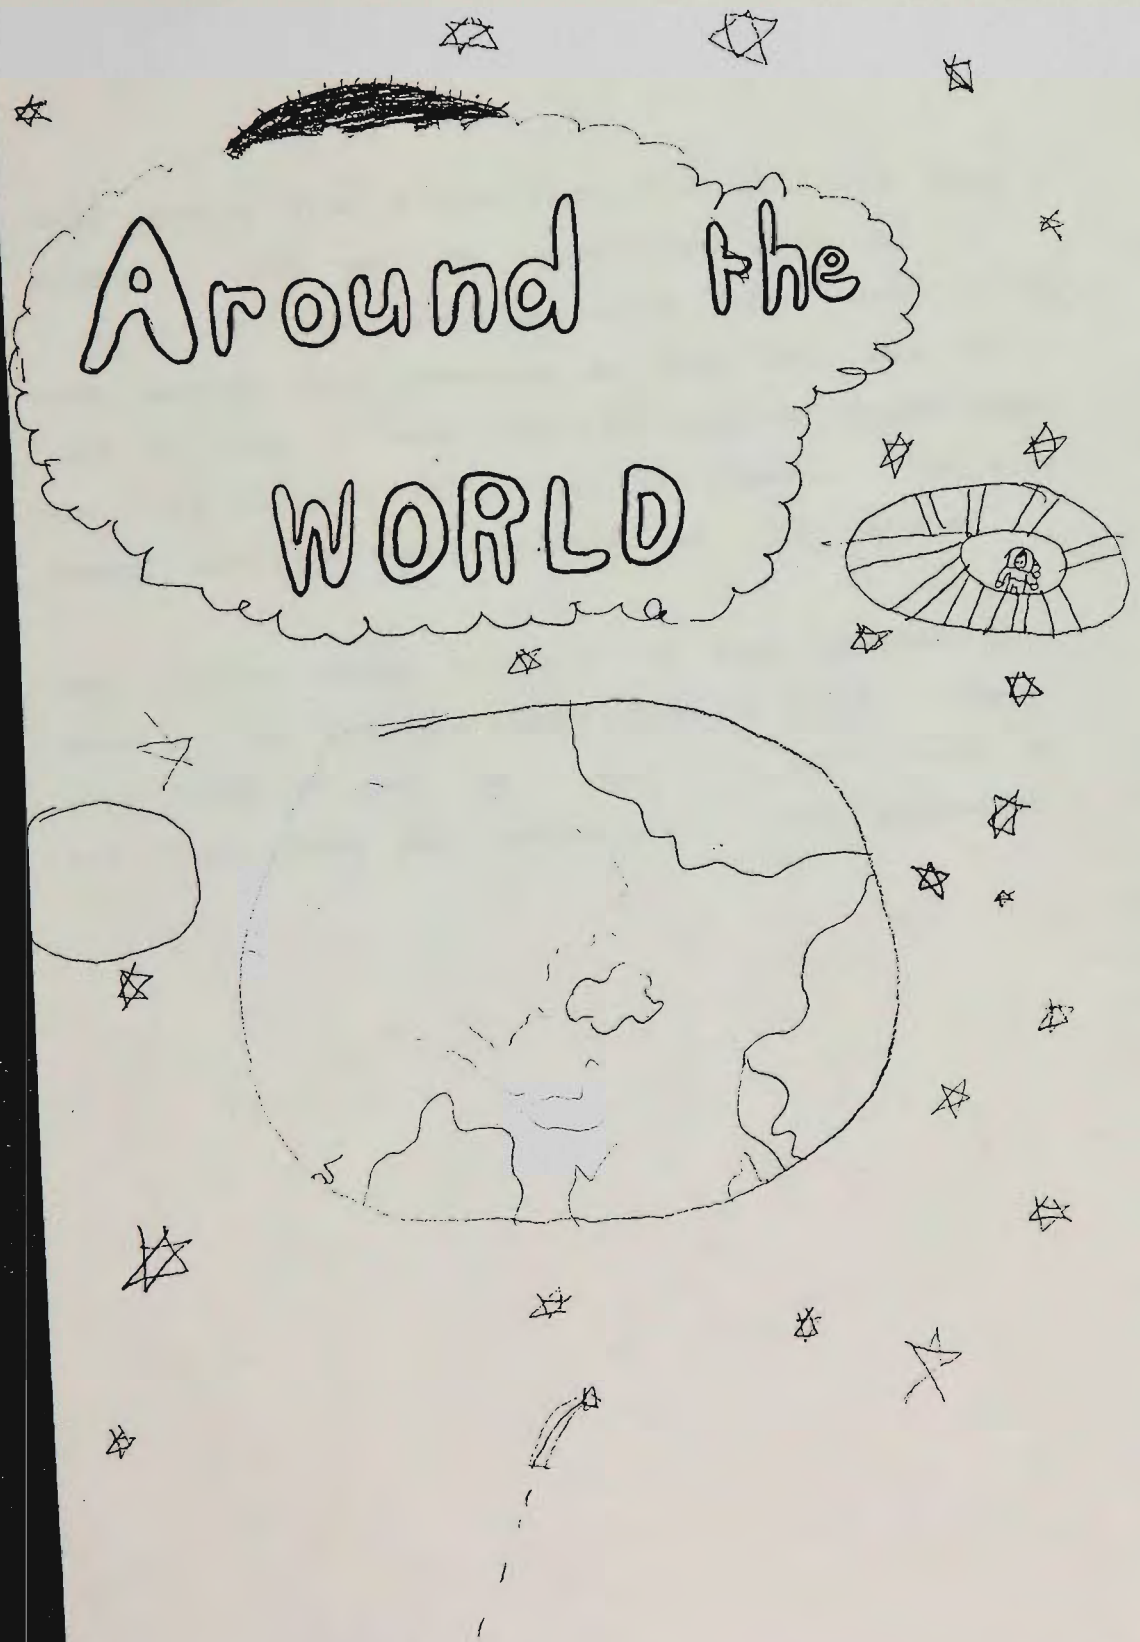 Around the
WORLD